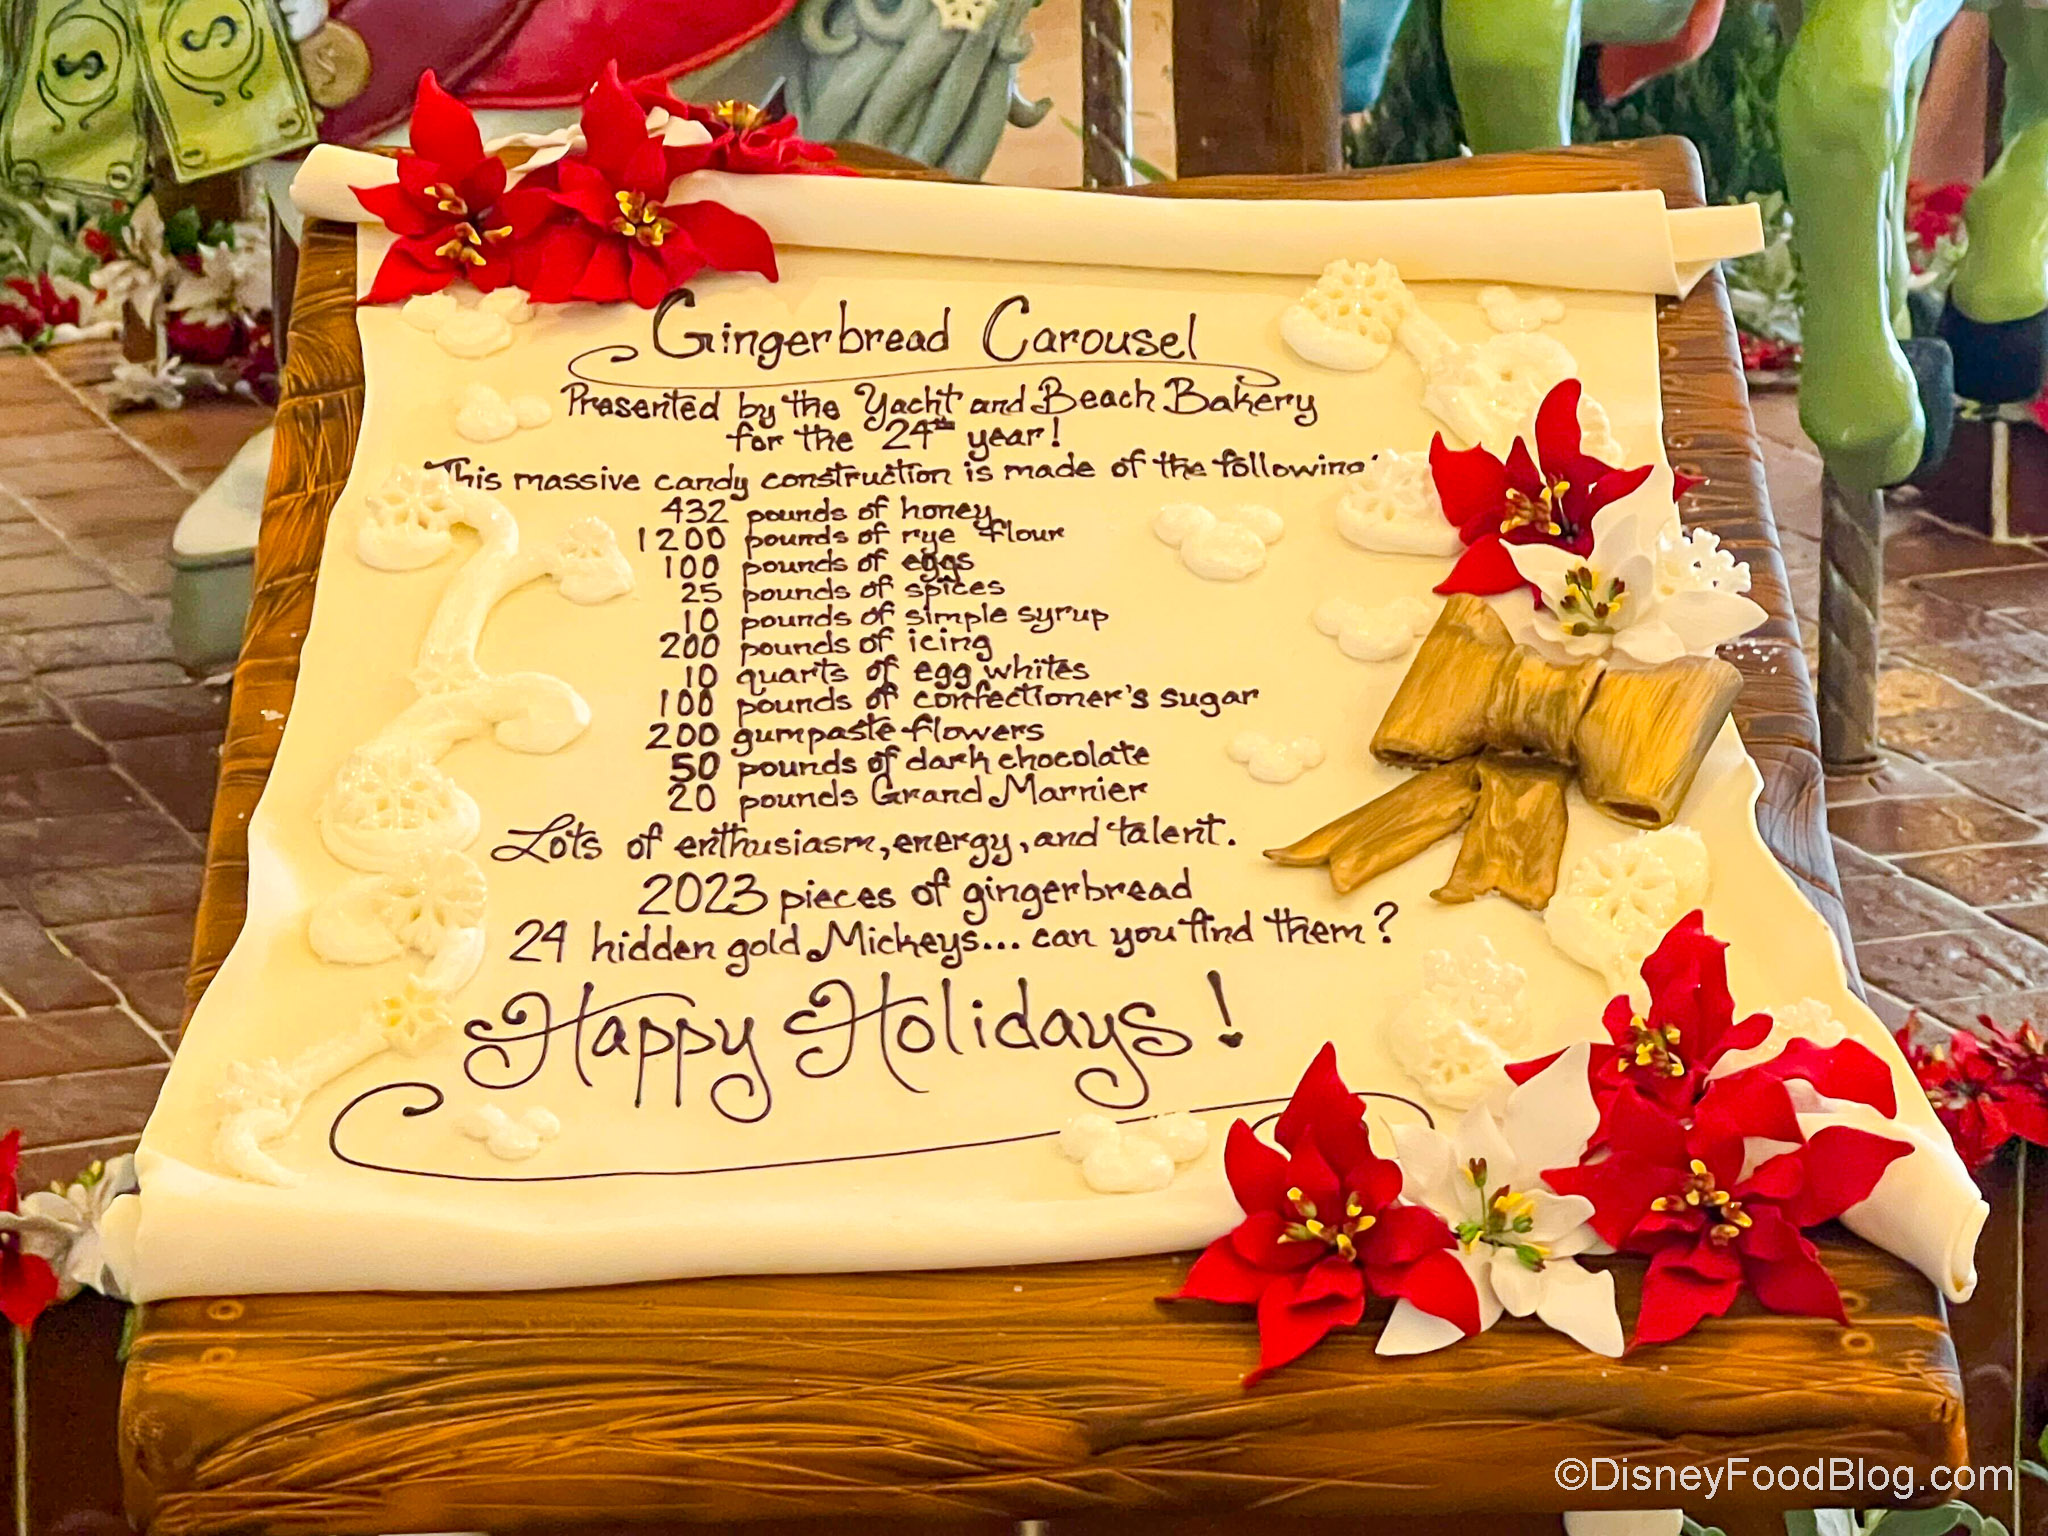 Gingerbread Carousel
Presented by the Yacht and Beach Bakery
for the 24th year!
This massive candy construction is made of the following:
432 pounds of honey
1200 pounds of rye flour
100 pounds of eggs
25 pounds of spices
10 pounds of simple syrup
200 pounds of icing
10 quarts of egg whites
100 pounds of confectioner's sugar
200 gumpaste flowers
50 pounds of dark chocolate
20 pounds Grand Marnier
Lots of enthusiasm, energy, and talent.
2023 pieces of gingerbread
24 hidden gold Mickeys... can you find them?
Happy Holidays!
©DisneyFoodBlog.com